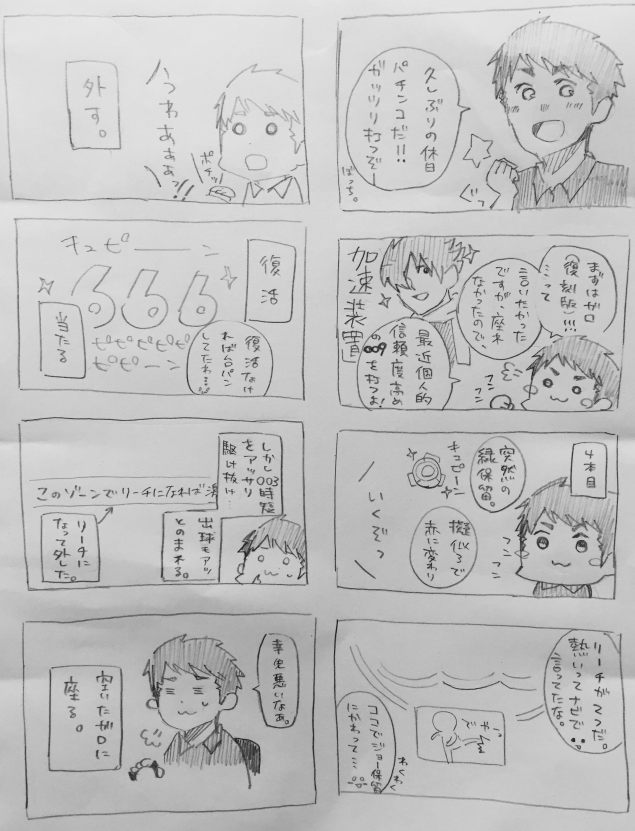 久しぶりの休日
パチンコだ!!
ガッツリ打つぞー
ぐっ
ばっち。
まずはガロ
(復刻版)!!!
…って
言いたかった
ですが、座れ
なかったので、
加速装置
最近個人的
信頼度高め
の009を打つよ!
フンフン
4本目
突然の
緑保留。
キュピーン
擬似3で
赤に変わり
いくぞっ
フンフン
リーチがてつだ。
熱いってナゼで
言ってたな。
やっ
で
ココでジョー保留
にかわって…
わくわく
うわあああぁっ!
ポチッ
外す。
復活
キュピーーーン
666
ピピピピピ
ピピーン
当たる
復活なけ
れば台パン
してたわ…
しかし003時短
をアッサリ
駆け抜け…
このゾーンでリーチになれば
リーチに
なって外した。
出球もアッ
とのまれる。
幸先悪いなぁ。
空いたガロに
座る。